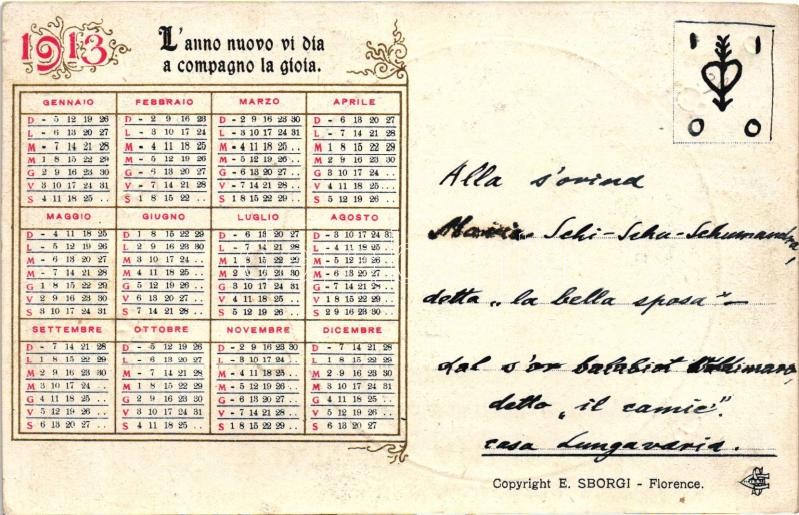 1913
L'anno nuovo vi dia
a compagno la gioia.
GENNAIO FEBBRAIO MARZO APRILE
D - 5 12 19 26 D - 2 9 16 23 D - 2 9 16 23 30 D - 6 13 20 27
L - 6 13 20 27 L - 3 10 17 24 L - 3 10 17 24 31 L - 7 14 21 28
M - 7 14 21 28 M - 4 11 18 25 M - 4 11 18 25 .. M 1 8 15 22 29
M 1 8 15 22 29 M - 5 12 19 26 M - 5 12 19 26 .. M 2 9 16 23 30
G 2 9 16 23 30 G - 6 13 20 27 G - 6 13 20 27 .. G 3 10 17 24 ..
V 3 10 17 24 31 V - 7 14 21 28 V - 7 14 21 28 .. V 4 11 18 25 ..
S 4 11 18 25 .. S 1 8 15 22 .. S 1 8 15 22 29 .. S 5 12 19 26 ..
MAGGIO GIUGNO LUGLIO AGOSTO
D - 4 11 18 25 D 1 8 15 22 29 D - 6 13 20 27 D - 3 10 17 24 31
L - 5 12 19 26 L 2 9 16 23 30 L - 7 14 21 28 L - 4 11 18 25 ..
M - 6 13 20 27 M 3 10 17 24 .. M 1 8 15 22 29 M - 5 12 19 26 ..
M - 7 14 21 28 M 4 11 18 25 .. M 2 9 16 23 30 M - 6 13 20 27 ..
G 1 8 15 22 29 G 5 12 19 26 .. G 3 10 17 24 31 G - 7 14 21 28 ..
V 2 9 16 23 30 V 6 13 20 27 .. V 4 11 18 25 .. V 1 8 15 22 29 ..
S 3 10 17 24 31 S 7 14 21 28 .. S 5 12 19 26 .. S 2 9 16 23 30 ..
SETTEMBRE OTTOBRE NOVEMBRE DICEMBRE
D - 7 14 21 28 D - 5 12 19 26 D - 2 9 16 23 30 D - 7 14 21 28
L 1 8 15 22 29 L - 6 13 20 27 L - 3 10 17 24 .. L 1 8 15 22 29
M 2 9 16 23 30 M - 7 14 21 28 M - 4 11 18 25 .. M 2 9 16 23 30
M 3 10 17 24 .. M 1 8 15 22 29 M - 5 12 19 26 .. M 3 10 17 24 31
G 4 11 18 25 .. G 2 9 16 23 30 G - 6 13 20 27 .. G 4 11 18 25 ..
V 5 12 19 26 .. V 3 10 17 24 31 V - 7 14 21 28 .. V 5 12 19 26 ..
S 6 13 20 27 .. S 4 11 18 25 .. S 1 8 15 22 29 .. S 6 13 20 27 ..
1 1
0 0
Alla s'orind
Maria - Schi - Schu - Schumandra,
detta „la bella sposa" -
dal s'or
detto „il camic".
casa Lungavaria.
Copyright E. SBORGI - Florence.